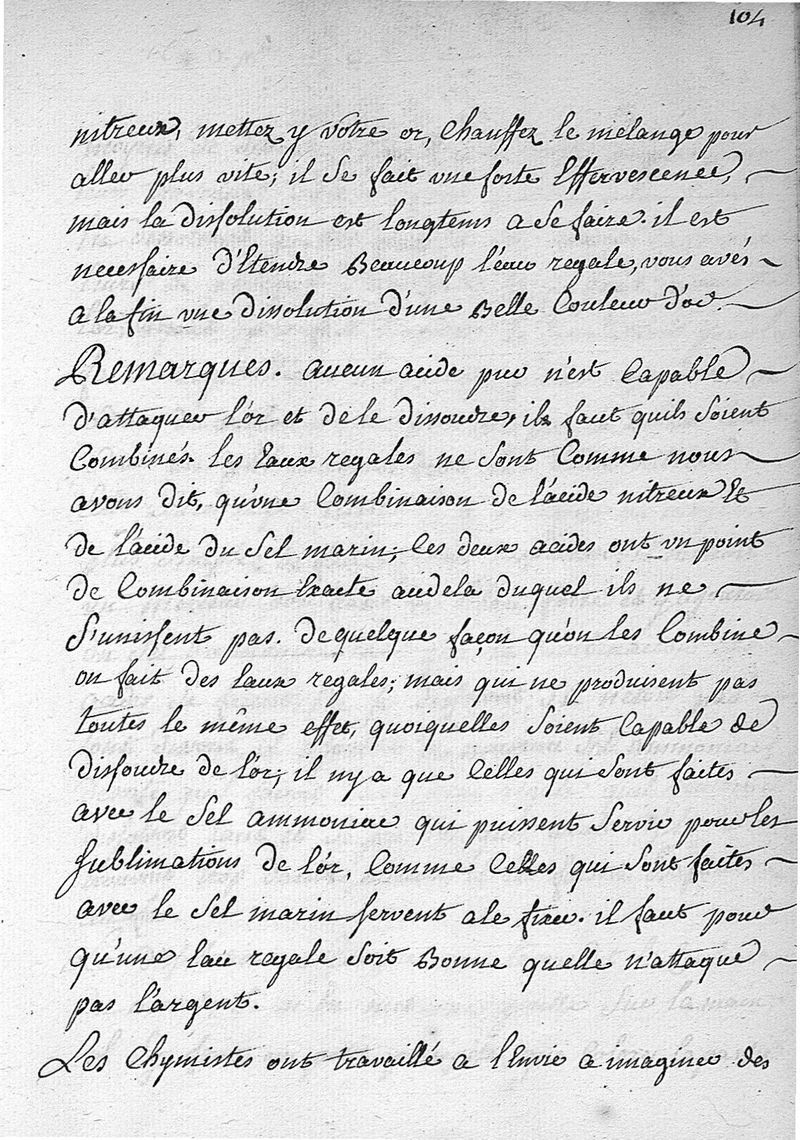 104
nitreux, mettez y vôtre or, Chauffez le mélange pour
aller plus vite; il se fait vne forte Effervescence,
mais la dissolution est longtems a se faire. il est
necessaire d'Etendre Beaucoup l'eau regale, vous avés
a la fin vne dissolution d'une Belle Couleur d'or.
Remarques. aucun acide pur n'est Capable
d'attaquer l'or et de le dissoudre, ils faut quils soient
Combinés. les Eaux regales ne sont Comme nous
avons dit, qu'vne Combinaison de l'acide nitreux Et
de l'acide du Sel marin; Ces deux acides ont vn point
de Combinaison Exacte audela duquel ils ne
s'unissent pas. de quelque façon qu'on les Combine
on fait des Eaux regales; mais qui ne produisent pas
toutes le même effet, quoiquelles soient Capable de
dissoudre de l'or; il ny a que Celles qui sont faites
avec le Sel ammoniac qui puissent servir pour les
sublimations de l'or, Comme Celles qui sont faites
avec le Sel marin servent a le fixer. il faut pour
qu'une Eau regale soit Bonne quelle n'attaque
pas l'argent.
Les Chymistes ont travaillé a l'Envie a imaginer des